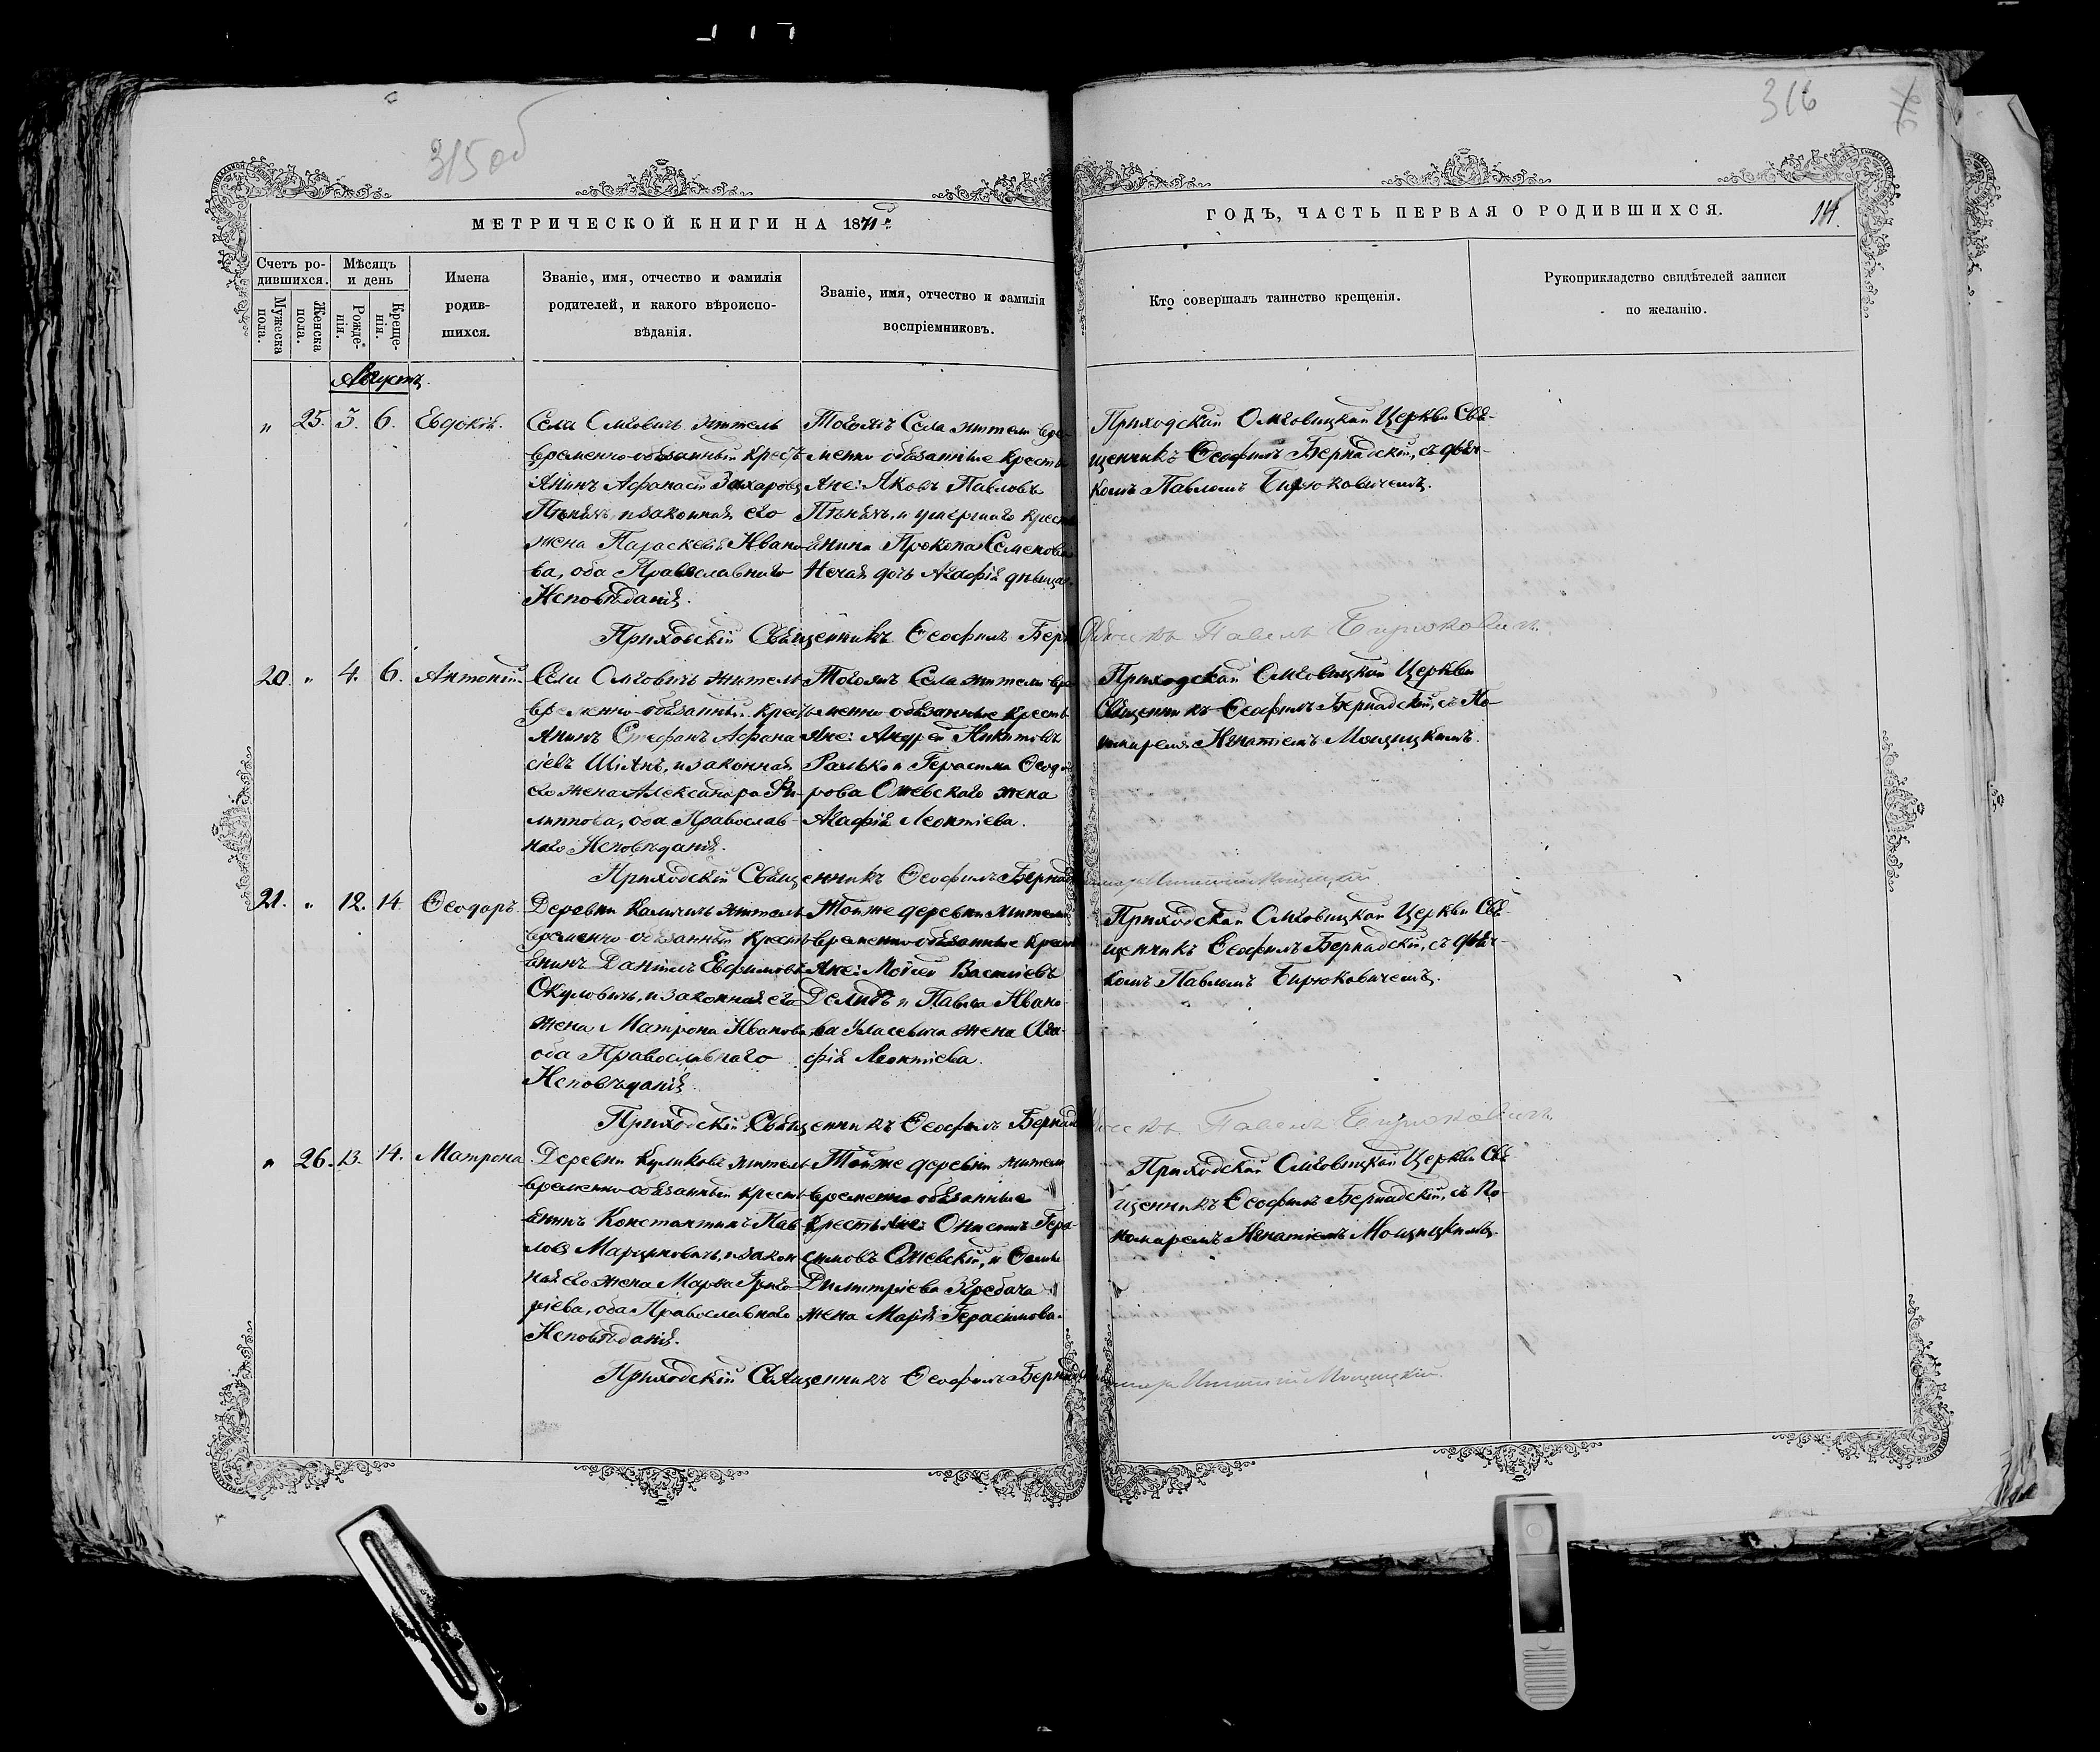 315 об
316
МЕТРИЧЕСКОЙ КНИГИ НА 1871й
ГОДЪ, ЧАСТЬ ПЕРВАЯ О РОДИВШИХСЯ.
14.
Счетъ ро-
дившихся.
Мужеска
пола.
Женска
пола.
Мѣсяцъ
и день
Рожде-
нія.
Креще-
нія.
Имена
родив-
шихся.
Званіе, имя, отчество и фамилія
родителей, и какого вѣроиспо-
вѣданія.
Званіе, имя, отчество и фамилія
воспріемниковъ.
Кто совершалъ таинство крещенія.
Рукоприкладство свидѣтелей записи
по желанію.
Августъ.
„ 25. 5. 6. Евдокія.
Села Омговичъ житель
временно-обязанный кресть
янинъ Афанасій Захаровъ
и законная его
жена Параскевія Ивано-
ва, оба Православнаго
Исповѣданія.
Тогожъ Села жители вре-
менно обязанные кресть
яне: Яковъ Павловъ
и умершаго кресть
янина Прокопа Семенова
Нечая дочь Агафія дѣвица.
Приходской Омговицкой Церкви Свя-
щенникъ Ѳеофилъ Бернадскій, съ дьяч-
комъ Павломъ Бирюковичемъ.
Приходскій Священникъ Ѳеофилъ Берн
Дьячекъ Павелъ Бирюковичъ.
20. „ 4. 6. Антоній.
Села Омговичъ житель
временно-обязанный кресть
янинъ Стефанъ Афана
сіевъ Шіянъ, и законная
его жена Александра Фи-
липпова, оба Православ-
наго Исповѣданія.
Тогожъ Села жители вре
менно обязанные кресть
яне: Андрей Никитовъ
Ралько и Герасима Ѳеодо
рова Ожевскаго жена
Агафія Леонтіева.
Приходской Омговицкой Церкви
Священникъ Ѳеофилъ Бернадскій, съ По
номаремъ Игнатіемъ Мощицкимъ.
Приходскій Священникъ Ѳеофилъ Бернад
номарь Игнатій Мощицкій
21. „ 12. 14. Ѳеодоръ.
Деревни Каличичъ житель
временно-обязанный кресть
янинъ Даніилъ Евфимовъ
Окуловичъ, и законная его
жена Матрона Иванова
оба Православнаго
Исповѣданія.
Тойже деревни жители
временно обязанные кресть
яне: Мойсей Василіевъ
Демидъ и Павла Ивано-
ва Уласевича жена Ага-
фія Леонтіева.
Приходской Омговицкой Церкви Свя-
щенникъ Ѳеофилъ Бернадскій, съ дьяч-
комъ Павломъ Бирюковичемъ.
Приходскій Священникъ Ѳеофилъ Бернад
Дьячекъ Павелъ Бирюковичъ.
„ 26. 13. 14. Матрона.
Деревни Куликовъ житель
временно-обязанный кресть
янинъ Константинъ Пав
ловъ Марциновичъ, и закон
ная его жена Марѳа Григо
ріева, оба Православнаго
Исповѣданія.
Тойже деревни жители
временно обязанные
крестьяне: Онисимъ Гера-
симовъ Ожевскій, и Ѳомы
Димитріева Згребача
жена Марія Герасимова.
Приходской Омговицкой Церкви Свя
щенникъ Ѳеофилъ Бернадскій, съ По-
номаремъ Игнатіемъ Мощицкимъ.
Приходскій Священникъ Ѳеофилъ Бернад
номарь Игнатій Мощицкій.